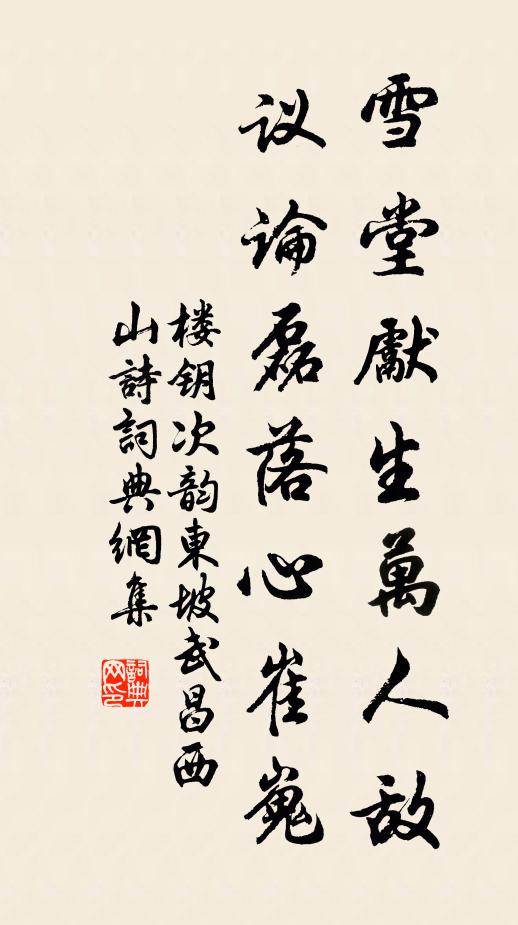 雪堂獻生萬人敌
议論磊落心崔嵬
楼钥次韵東坡武昌西
山詩詞典網集
詞典
网印